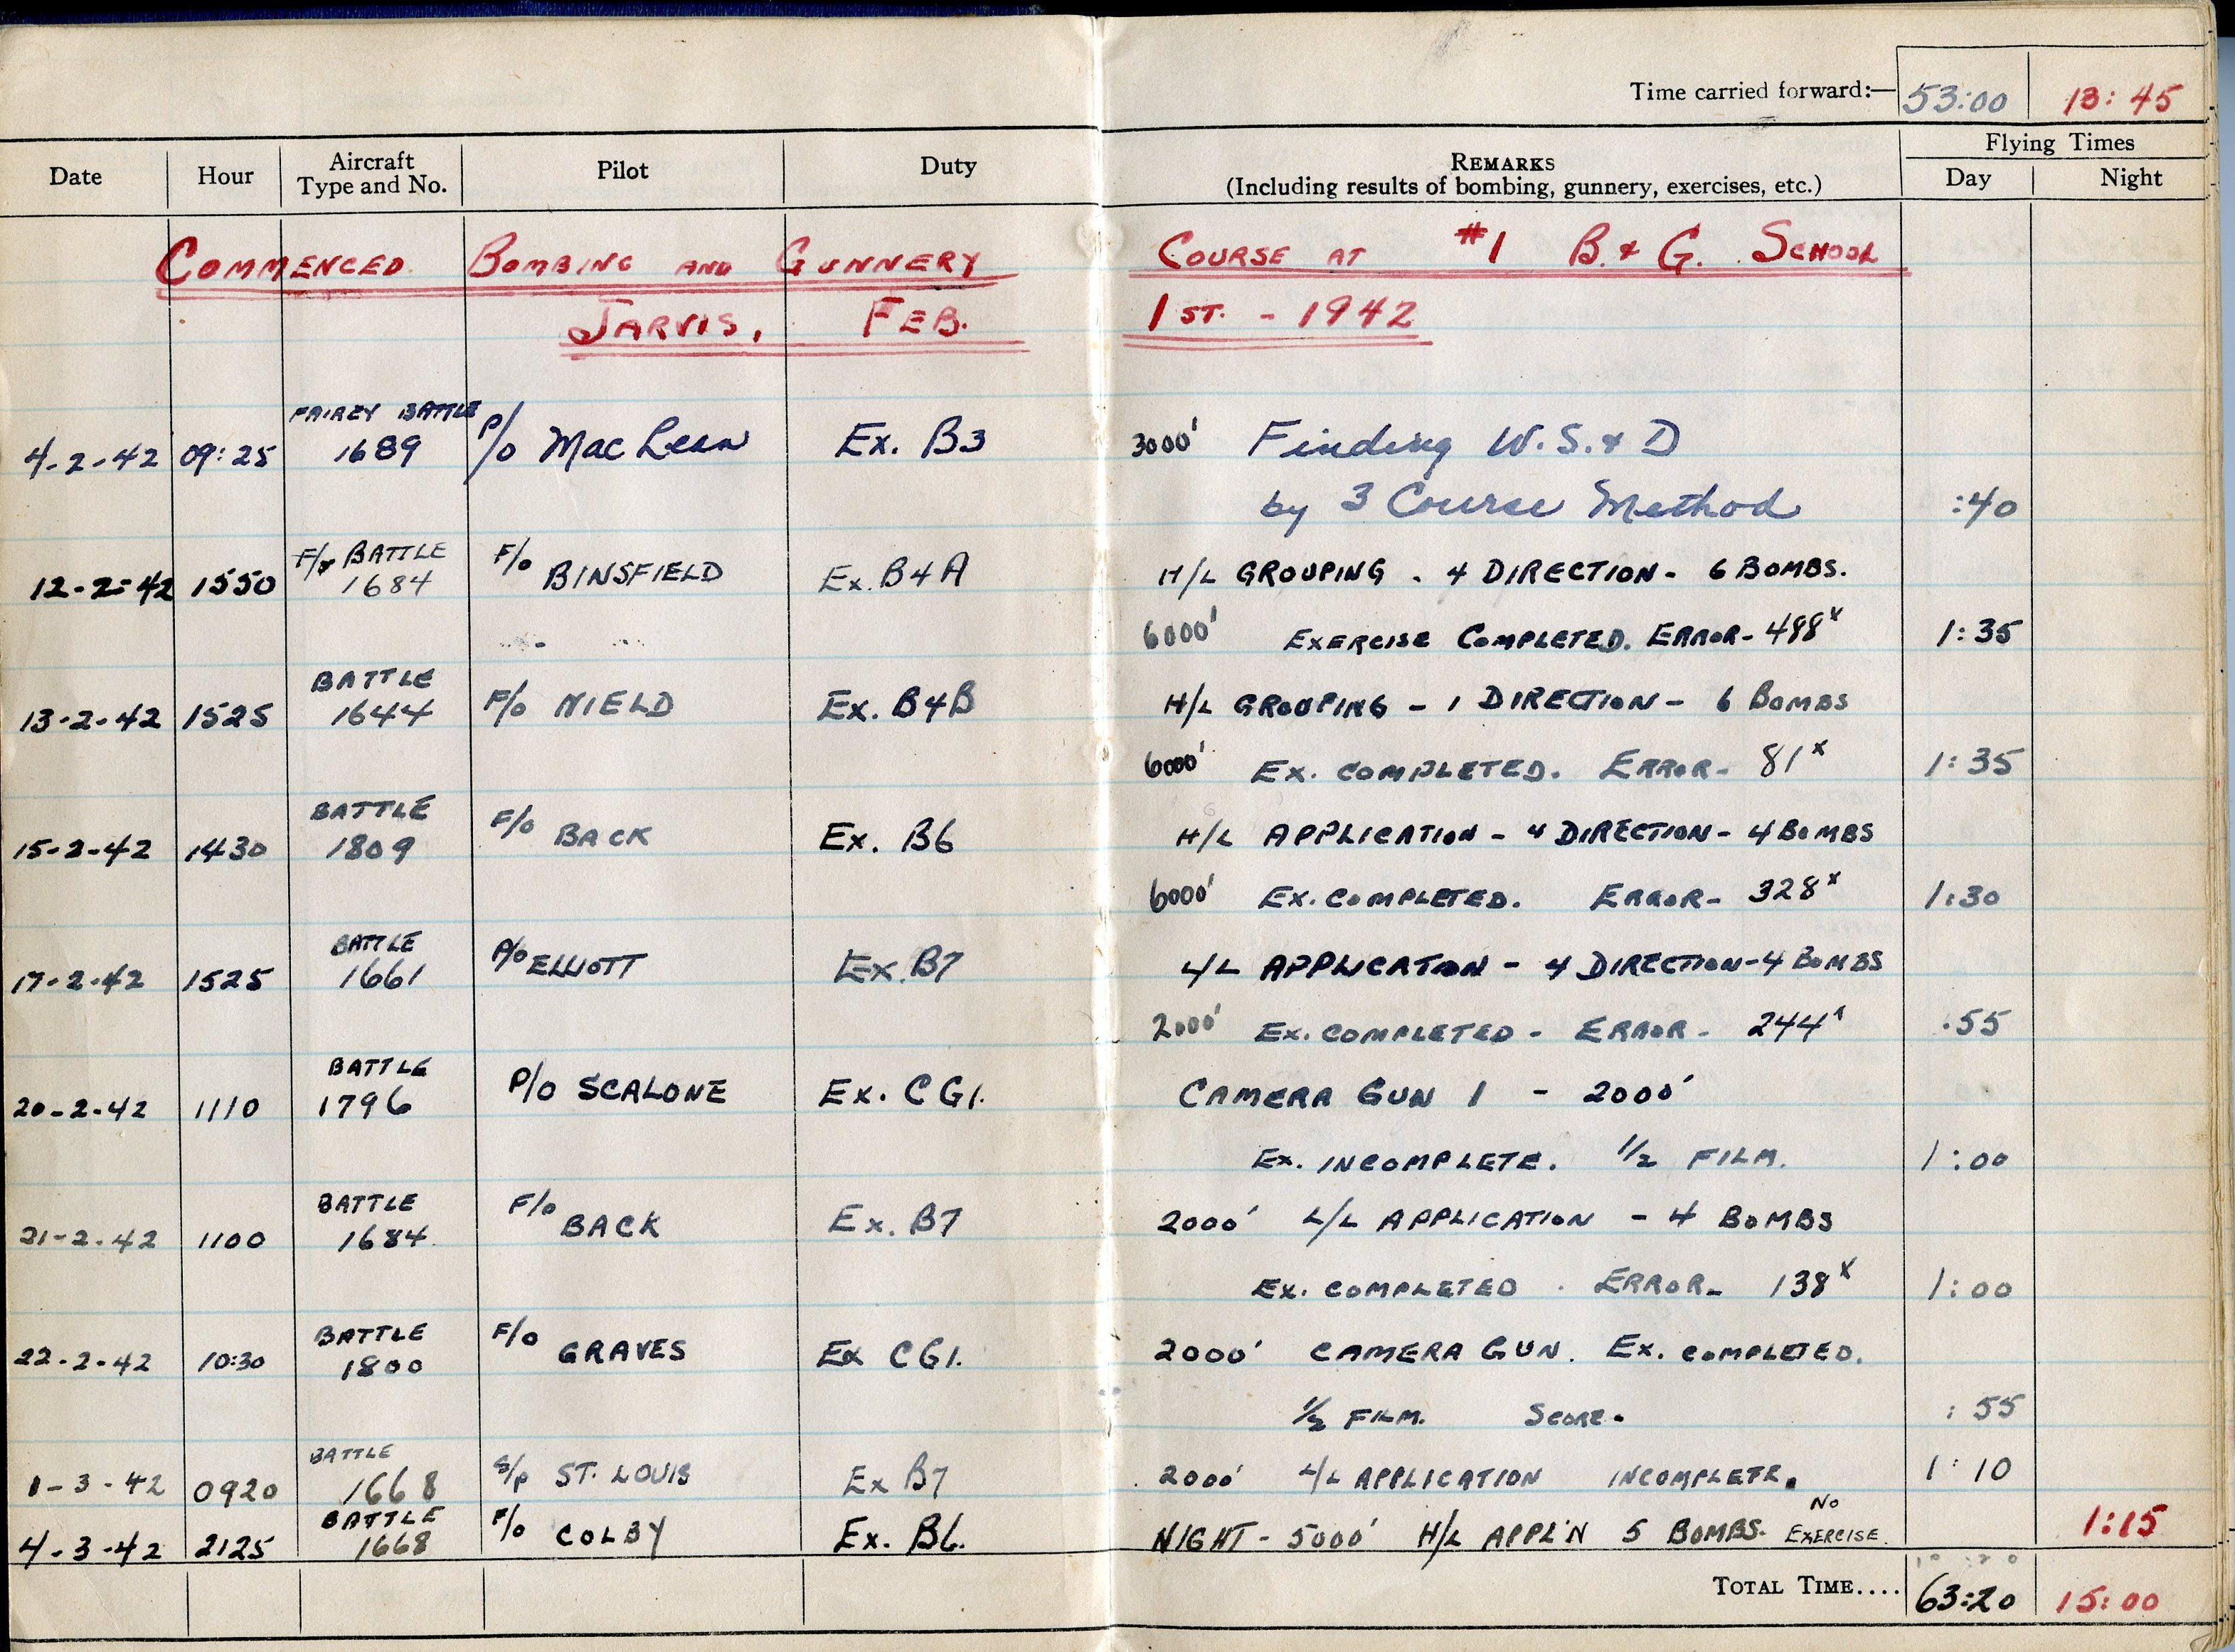 Time carried forward:— 53:00 13:45
Date Hour Aircraft Type and No. Pilot Duty REMARKS (Including results of bombing, gunnery, exercises, etc.) Flying Times Day Night
COMMENCED BOMBING AND GUNNERY COURSE AT #1 B. & G. SCHOOL
JARVIS, FEB. 1ST. - 1942
FAIREY BATTLE
4-2-42 09:25 1689 P/O MacLean Ex. B3 3000' Finding W.S. & D
by 3 Course Method :40
12-2-42 1550 F/y BATTLE 1684 F/O BINSFIELD Ex. B4A H/L GROUPING - 4 DIRECTION - 6 BOMBS.
6000' EXERCISE COMPLETED. ERROR - 498x 1:35
BATTLE
13-2-42 1525 1644 F/O NIELD Ex. B4B H/L GROUPING - 1 DIRECTION - 6 BOMBS
6000' EX. COMPLETED. ERROR - 81x 1:35
BATTLE
15-2-42 1430 1809 F/O BACK Ex. B6 H/L APPLICATION - 4 DIRECTION - 4 BOMBS
6000' EX. COMPLETED. ERROR - 328x 1:30
BATTLE
17-2-42 1525 1661 P/O ELLIOTT Ex. B7 L/L APPLICATION - 4 DIRECTION - 4 BOMBS
2000' EX. COMPLETED - ERROR - 244x :55
BATTLE
20-2-42 1110 1796 P/O SCALONE Ex. CG1. CAMERA GUN 1 - 2000'
EX. INCOMPLETE. 1/2 FILM. 1:00
BATTLE
21-2-42 1100 1684 F/O BACK Ex. B7 2000' L/L APPLICATION - 4 BOMBS
EX. COMPLETED. ERROR - 138x 1:00
BATTLE
22-2-42 10:30 1800 F/O GRAVES Ex CG1. 2000' CAMERA GUN. EX. COMPLETED.
1/2 FILM. SCORE - :55
BATTLE
1-3-42 0920 1668 S/P ST. LOUIS Ex B7 2000' L/L APPLICATION INCOMPLETE. 1:10
BATTLE
4-3-42 2125 1668 F/O COLBY Ex. B6. NIGHT - 5000' H/L APPL'N 5 BOMBS. NO EXERCISE. 1:15
TOTAL TIME.... 63:20 15:00